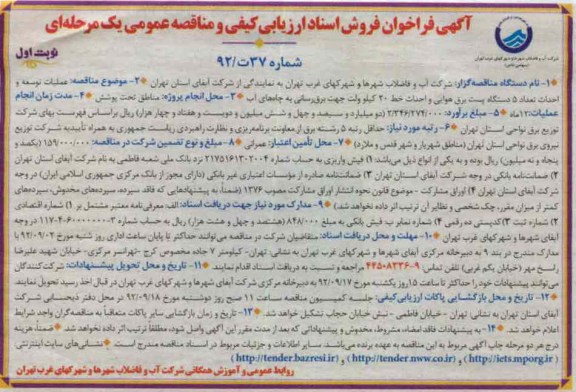 آگهی فراخوان فروش اسناد ارزیابی کیفی و مناقصه عمومی یک مرحله‌ای
شماره ۳۷ت/۹۲
نوبت اول
شرکت آب و فاضلاب شهرها و شهرکهای غرب تهران
۱- نام دستگاه مناقصه‌گزار: شرکت آب و فاضلاب شهرها و شهرکهای غرب تهران به نمایندگی از شرکت آبفای استان تهران ۲- موضوع مناقصه: عملیات توسعه و
احداث تعداد ۵ دستگاه پست برق هوایی و احداث خط ۲۰ کیلو ولت جهت برق‌رسانی به چاه‌های آب ۳- محل انجام پروژه: مناطق تحت پوشش ۴- مدت زمان انجام
عملیات: ۱۲ماه ۵- مبلغ برآورد: ۲/۳۴۶/۲۷۴/۰۰۰ (دو میلیارد و سیصد و چهل و شش میلیون و دویست و هفتاد و چهار هزار) ریال براساس فهرست بهای شرکت
توزیع برق نیاحی استان تهران ۶- رتبه مورد نیاز: حداقل رتبه ۵ رشته برق از معاونت برنامه‌ریزی و نظارت راهبردی ریاست جمهوری به همراه تأییدیه شرکت توزیع
نیروی برق نواحی استان تهران (مناطق شهریار و شهر قدس و ملارد) ۷- محل تأمین اعتبار: عمرانی ۸- مبلغ و نوع تضمین شرکت در مناقصه: ۱۵۹/۰۰۰/۰۰۰ (یکصد و
پنجاه و نه میلیون) ریال بوده و به یکی از انواع ذیل می‌باشد: ۱) فیش واریزی به حساب شماره ۲۱۷۵۱۶۱۳۰۲۰۰۴ نزد بانک ملی شعبه فاطمی به نام شرکت آبفای استان تهران
۲) ضمانتنامه بانکی در وجه شرکت آبفای استان تهران ۳) ضمانتنامه صادره از مؤسسات اعتباری غیر بانکی (دارای مجوز از بانک مرکزی جمهوری اسلامی ایران) در وجه
شرکت آبفای استان تهران ۴) اوراق مشارکت - موضوع قانون نحوه انتشار اوراق مشارکت مصوب ۱۳۷۶ (ضمناً، به پیشنهادهایی که فاقد سپرده، سپرده‌های مخدوش، سپرده‌های
کمتر از میزان مقرر، چک شخصی و نظایر آن ترتیب اثر داده نخواهد شد) ۹- مدارک مورد نیاز جهت دریافت اسناد: الف معرفی‌نامه معتبر مشتمل بر ۱) شماره اقتصادی
۲) شماره ثبت ۳) کدپستی ده رقمی ۴) شماره نمابر ب) فیش بانکی به مبلغ ۸۴۸/۰۰۰ (هشتصد و چهل و هشت هزار) ریال به حساب شماره در وجه
آبفای شهرها و شهرکهای غرب تهران ۱۰- مهلت و محل دریافت اسناد: متقاضیان شرکت در مناقصه می‌توانند حداکثر تا پایان ساعت اداری روز شنبه مورخ ۹۲/۰۹/۰۲ با
مدارک مندرج در بند ۹ به دبیرخانه مرکزی آبفای شهرها و شهرکهای غرب تهران به نشانی: تهران- کیلومتر ۷ جاده مخصوص کرج -تهرانسر مرکزی- خیابان شهید علیرضا
راسخ مهر (خیابان یکم غربی) تلفن تماس: ۹-۴۴۵۰۸۲۳۶ مراجعه و نسبت به دریافت اسناد اقدام نمایند. ۱۱- تاریخ و محل تحویل پیشنهادات: شرکت‌کنندگان
می‌توانند پیشنهادات خود را حداکثر تا ساعت ۱۵ روز یکشنبه مورخ ۹۲/۰۹/۱۷ به دبیرخانه مرکزی شرکت آبفای شهرها و شهرکهای غرب تهران در قبال اخذ رسید تحویل نمایند.
۱۲- تاریخ و محل بازگشایی پاکات ارزیابی کیفی: جلسه کمیسیون مناقصه ساعت ۱۱ صبح روز دوشنبه مورخ ۹۲/۰۹/۱۸ در محل دفتر ذیحسابی شرکت
آبفای استان تهران به نشانی تهران - خیابان فاطمی - نبش خیابان حجاب تشکیل خواهد شد. ۱۳- تاریخ و زمان بازگشایی سایر پاکات متعاقباً به مناقصه‌گران واجد شرایط
اعلام خواهد شد. ۱۴- به پیشنهادات فاقد امضاء، مشروط، مخدوش و پیشنهاداتی که بعد از مدت مقرر این آگهی واصل شود، مطلقاً ترتیب اثر داده نخواهد شد. ضمناً، هزینه
درج هر دو مرحله چاپ آگهی مربوط به این مناقصه به عهده برنده می‌باشد. سایر اطلاعات و جزئیات مربوط در اسناد مناقصه مندرج است. نشانی‌های سایت اینترنتی
(http://iets.mporg.ir) و (http://tender.nww.co.ir) و (http://tender.bazresi.ir)
روابط عمومی و آموزش همگانی شرکت آب و فاضلاب شهرها و شهرکهای غرب تهران